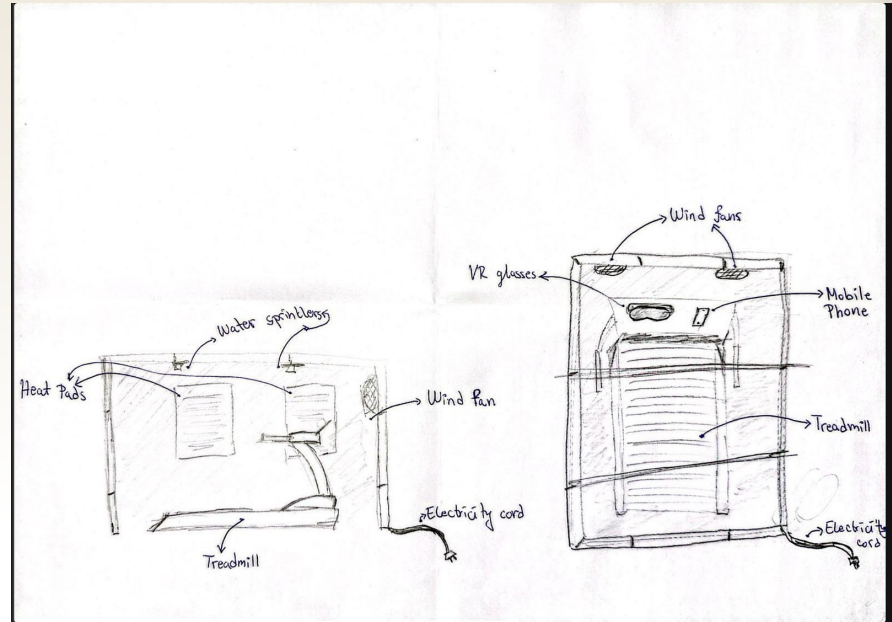 Water sprinklerss
Heat Pads
Wind fan
Electricity cord
Treadmill
Wind fans
VR glasses
Mobile
Phone
Treadmill
Electricity
cord